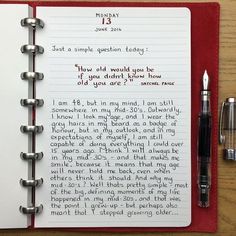 MONDAY
13
JUNE 2016
Just a simple question today:
"How old would you be
if you didn't know how
old you are?" SATCHEL PAIGE
I am 48, but in my mind, I am still
somewhere in my mid-30's. Outwardly,
I know I look my age, and I wear the
grey hairs in my beard as a badge of
honour, but in my outlook, and in my
expectations of myself, I am still
capable of doing everything I could over
15 years ago. I think I will always be
in my mid-30's - and that makes me
smile, because it means that my age
will never hold me back, even when
others think it should. And why my
mid-30's? Well that's pretty simple - most
of the big, defining moments of my life
happened in my mid-30's, and that was
the point I grew up - but perhaps also
meant that I stopped growing older...